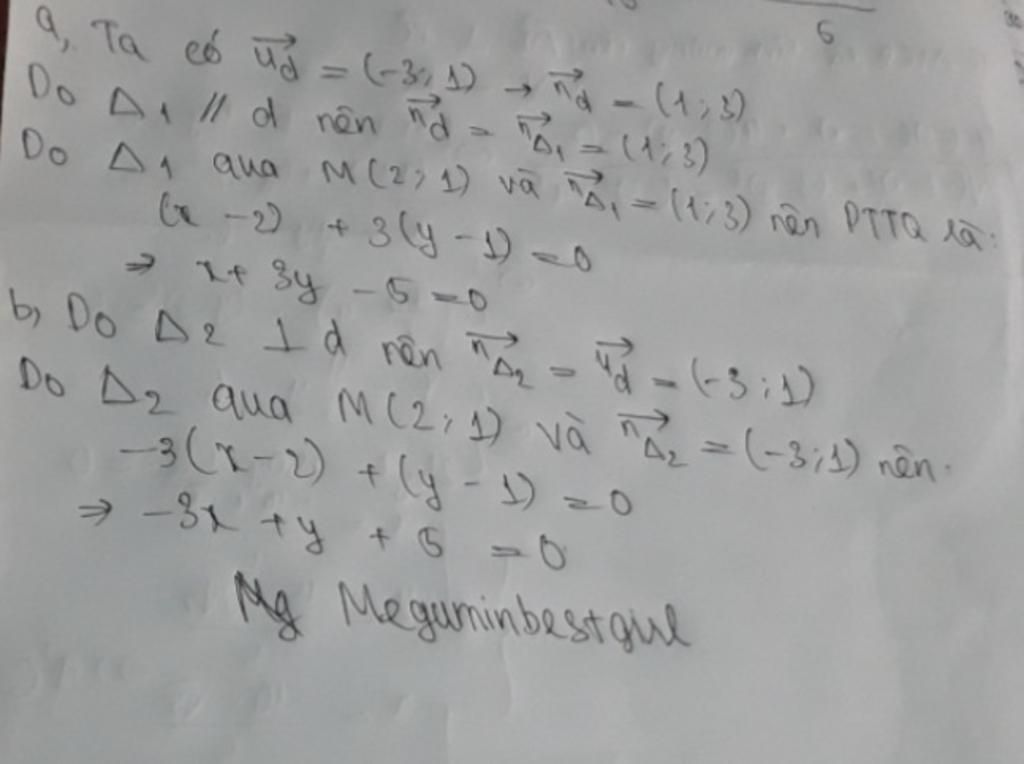 6
a, Ta có $\overrightarrow{u_d}$ = (-3; 1) → $\overrightarrow{n_d}$ = (1; 3)
Do Δ₁ // d nên $\overrightarrow{n_d}$ = $\overrightarrow{n_{Δ_1}}$ = (1; 3)
Do Δ₁ qua M(2; 1) và $\overrightarrow{n_{Δ_1}}$ = (1; 3) nên PTTQ là:
(x - 2) + 3(y - 1) = 0
⇒ x + 3y - 5 = 0
b, Do Δ₂ ⊥ d nên $\overrightarrow{n_{Δ_2}}$ = $\overrightarrow{u_d}$ = (-3; 1)
Do Δ₂ qua M(2; 1) và $\overrightarrow{n_{Δ_2}}$ = (-3; 1) nên.
-3(x - 2) + (y - 1) = 0
⇒ -3x + y + 5 = 0
Mg Meguminbestgirl